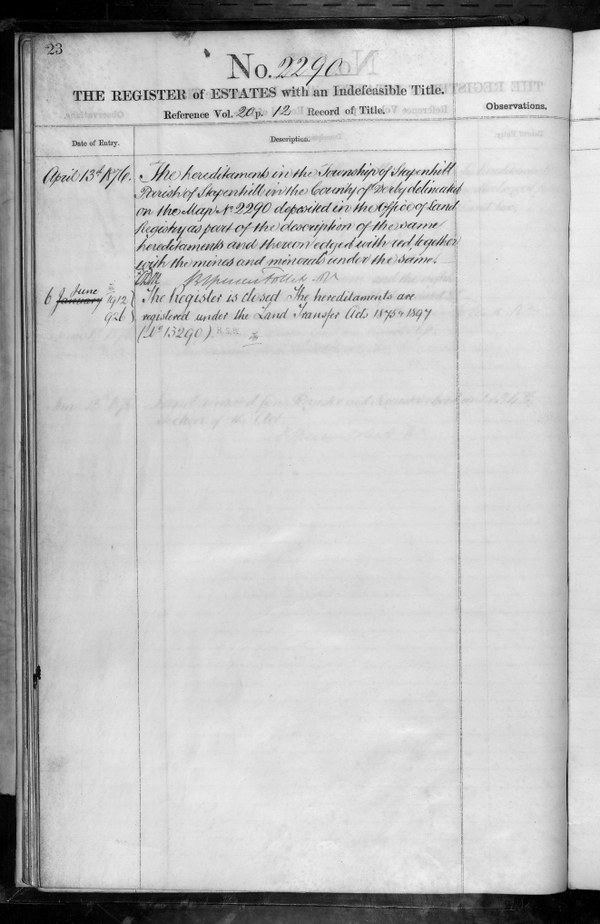 23
No. 2290
THE REGISTER of ESTATES with an Indefeasible Title.
Reference Vol. 20 p. 12 Record of Title.
Observations.
Date of Entry.
Description.
April 13th 1876.
The hereditaments in the Township of Stapenhill
Parish of Stapenhill in the County of Derby delineated
on the Map No 2290 deposited in the Office of Land
Registry as part of the description of the same
hereditaments and thereon edged with red together
with the mines and minerals under the same.
6 January June 1912
926
The Register is closed The hereditaments are
registered under the Land Transfer Acts 1875 & 1897
(No 13290).